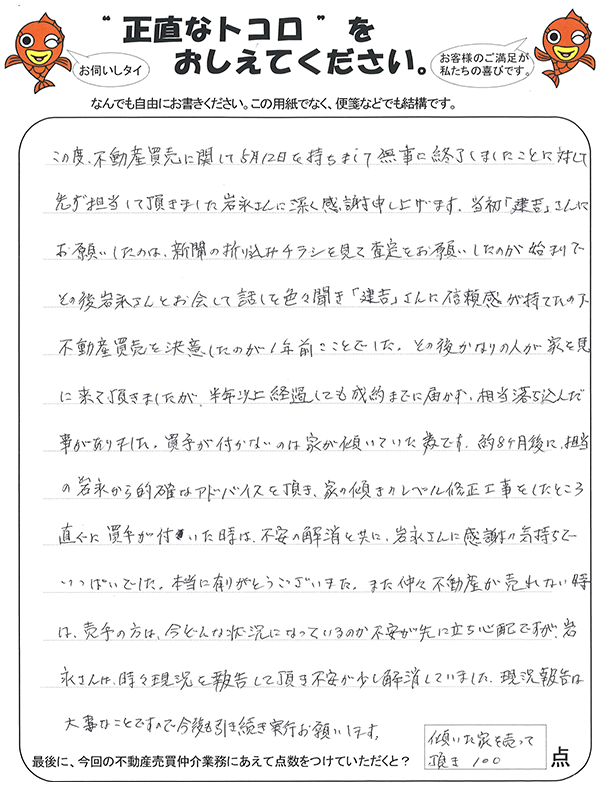 “正直なトコロ”を
おしえてください。
お伺いしタイ
お客様のご満足が
私たちの喜びです。
なんでも自由にお書きください。この用紙でなく、便箋などでも結構です。
この度、不動産買売に関して5月12日を持ちまして無事に終了しましたことに対して
先ず担当して頂きました岩永さんに深く感謝申し上げます。当初「建吉」さんに
お願いしたのは、新聞の折り込みチラシを見て査定をお願いしたのが始まりで
その後岩永さんとお会して話しを色々聞き「建吉」さんに信頼感が持てたの下
不動産買売を決意したのが1年前のことでした。その後かなりの人が家を見
に来て頂きましたが、半年以上経過しても成約までに届かず、相当落ち込んだ
事がありました。買手が付かないのは家が傾いていた為です。約8ヶ月後に、担当
の岩永から的確なアドバイスを頂き、家の傾きのレベル修正工事をしたところ
直ぐに買手が付いた時は、不安の解消と共に、岩永さんに感謝の気持ちで
いっぱいでした。本当に有りがとうございました。また仲々不動産が売れない時
は、売手の方は、今どんな状況になっているのか不安が先に立ち心配ですが、岩
永さんは、時々現況を報告して頂き不安が少し解消していました。現況報告は
大事なことですので今後も引き続き実行お願いします。
最後に、今回の不動産売買仲介業務にあえて点数をつけていただくと？
傾いた家を売って
頂き 100
点